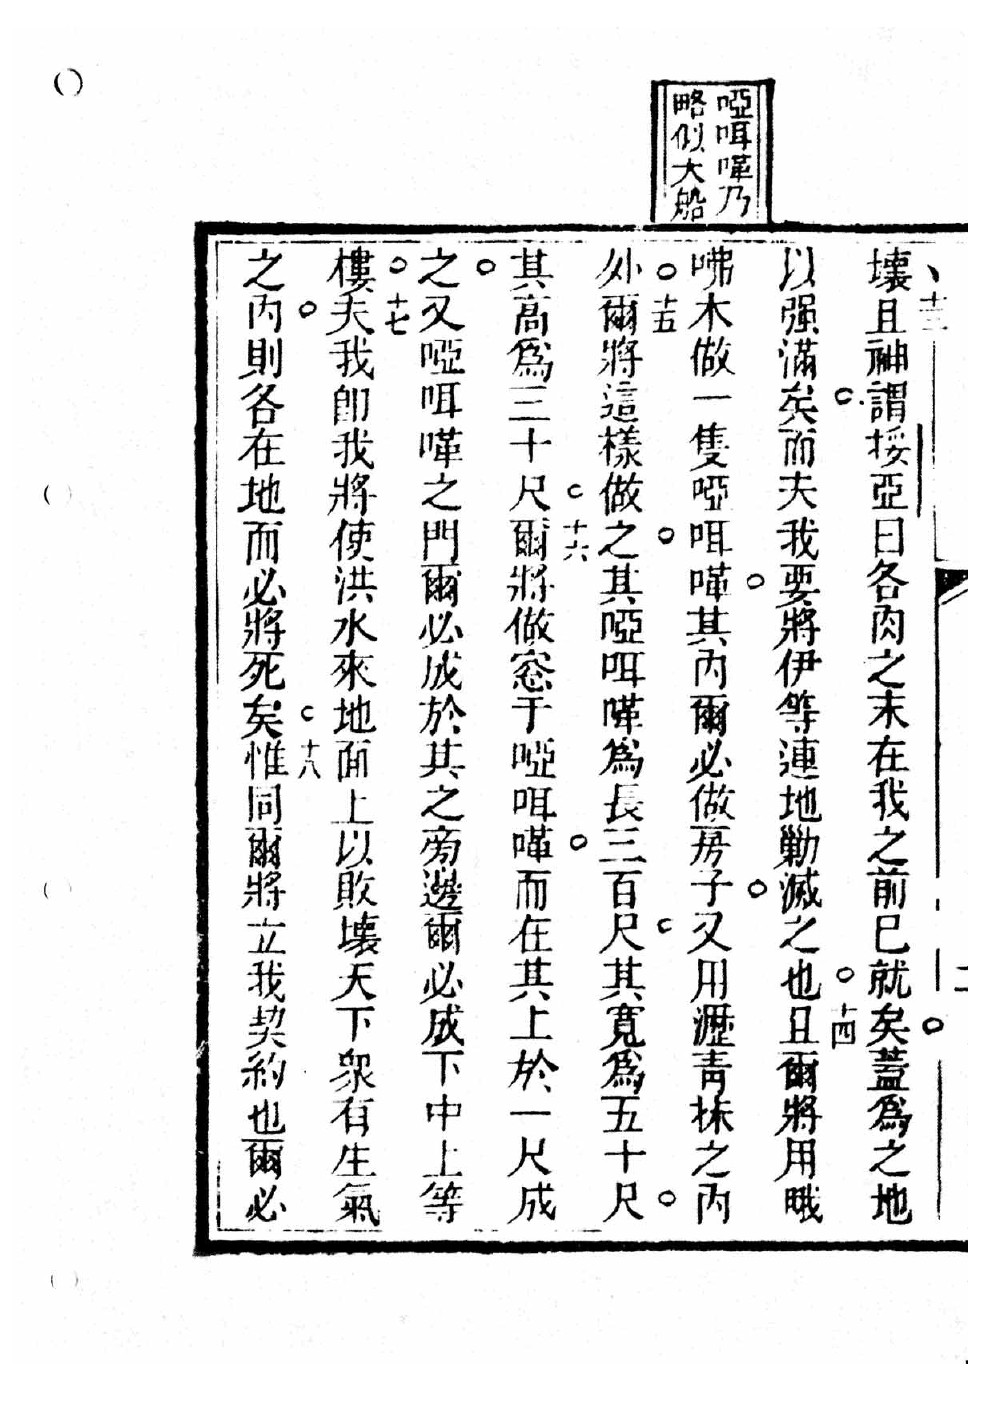 啞咡嘩乃
略似大船
十三
壞且神謂挼亞曰各肉之末在我之前已就矣蓋爲之地
以强滿矣而夫我要將伊等連地勦滅之也十四且爾將用哦
咈木做一隻啞咡嘩其內爾必做房子又用瀝青抹之內
外十五爾將這樣做之其啞咡嘩爲長三百尺其寬爲五十尺
其高爲三十尺十六爾將做窓于啞咡嘩而在其上於一尺成
之又啞咡嘩之門爾必成於其之旁邊爾必成下中上等
樓十七夫我卽我將使洪水來地面上以敗壞天下衆有生氣
之內則各在地而必將死矣十八惟同爾將立我契約也爾必